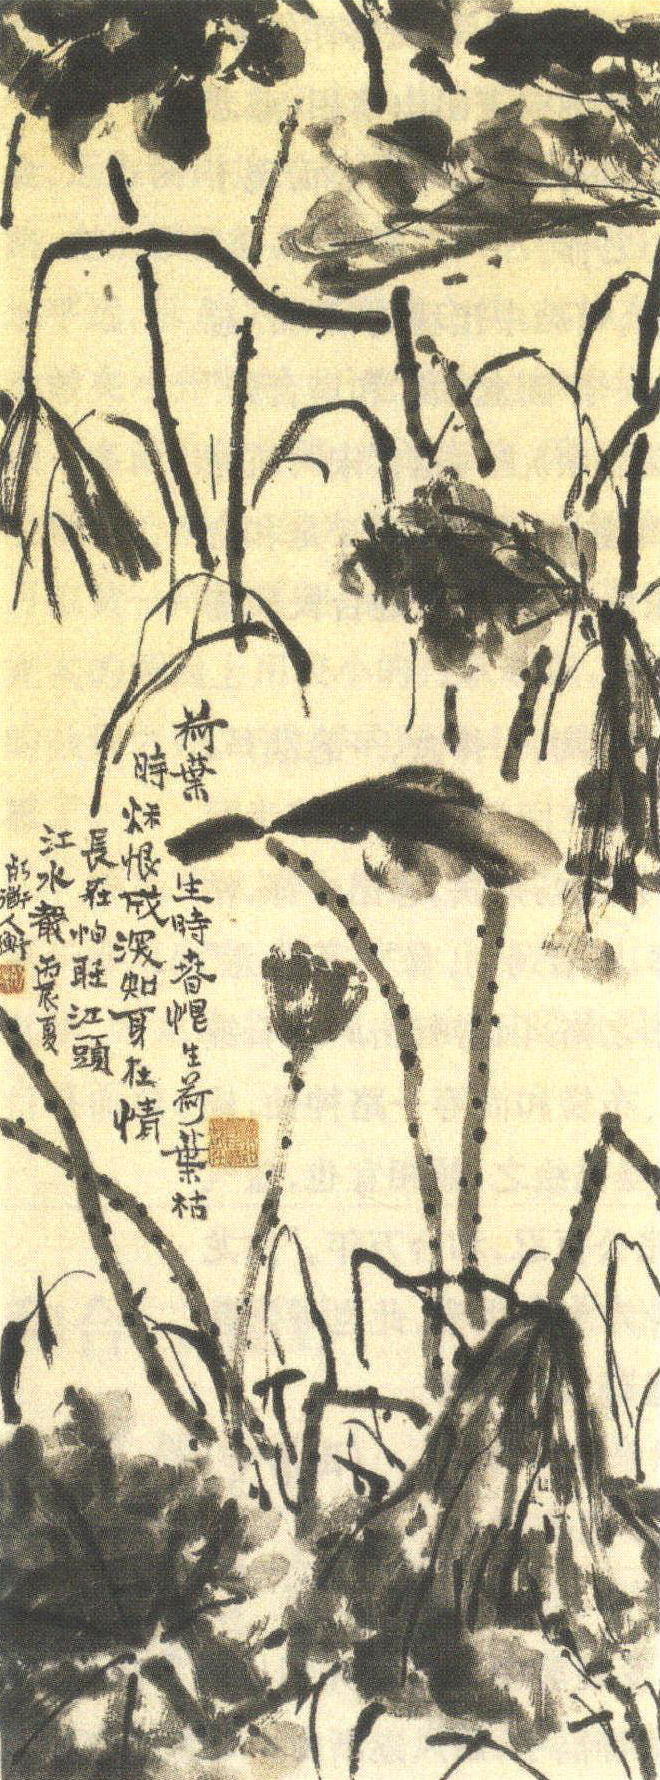 荷葉生時春恨生荷葉枯
時秋恨成深知身在情
長在怕聽江頭
江水聲丙辰夏